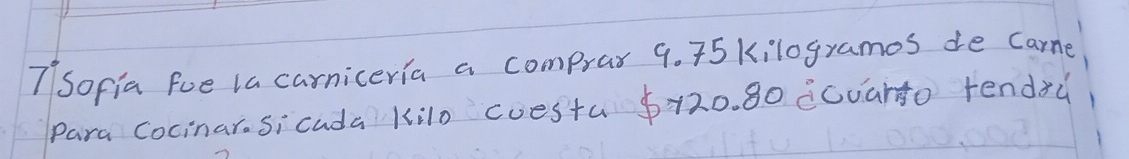 7° Sofía fue la carnicería a comprar 9.75 Kilogramos de carne
para cocinar. Si cada Kilo cuesta $120.80 ¿cuánto tendrá